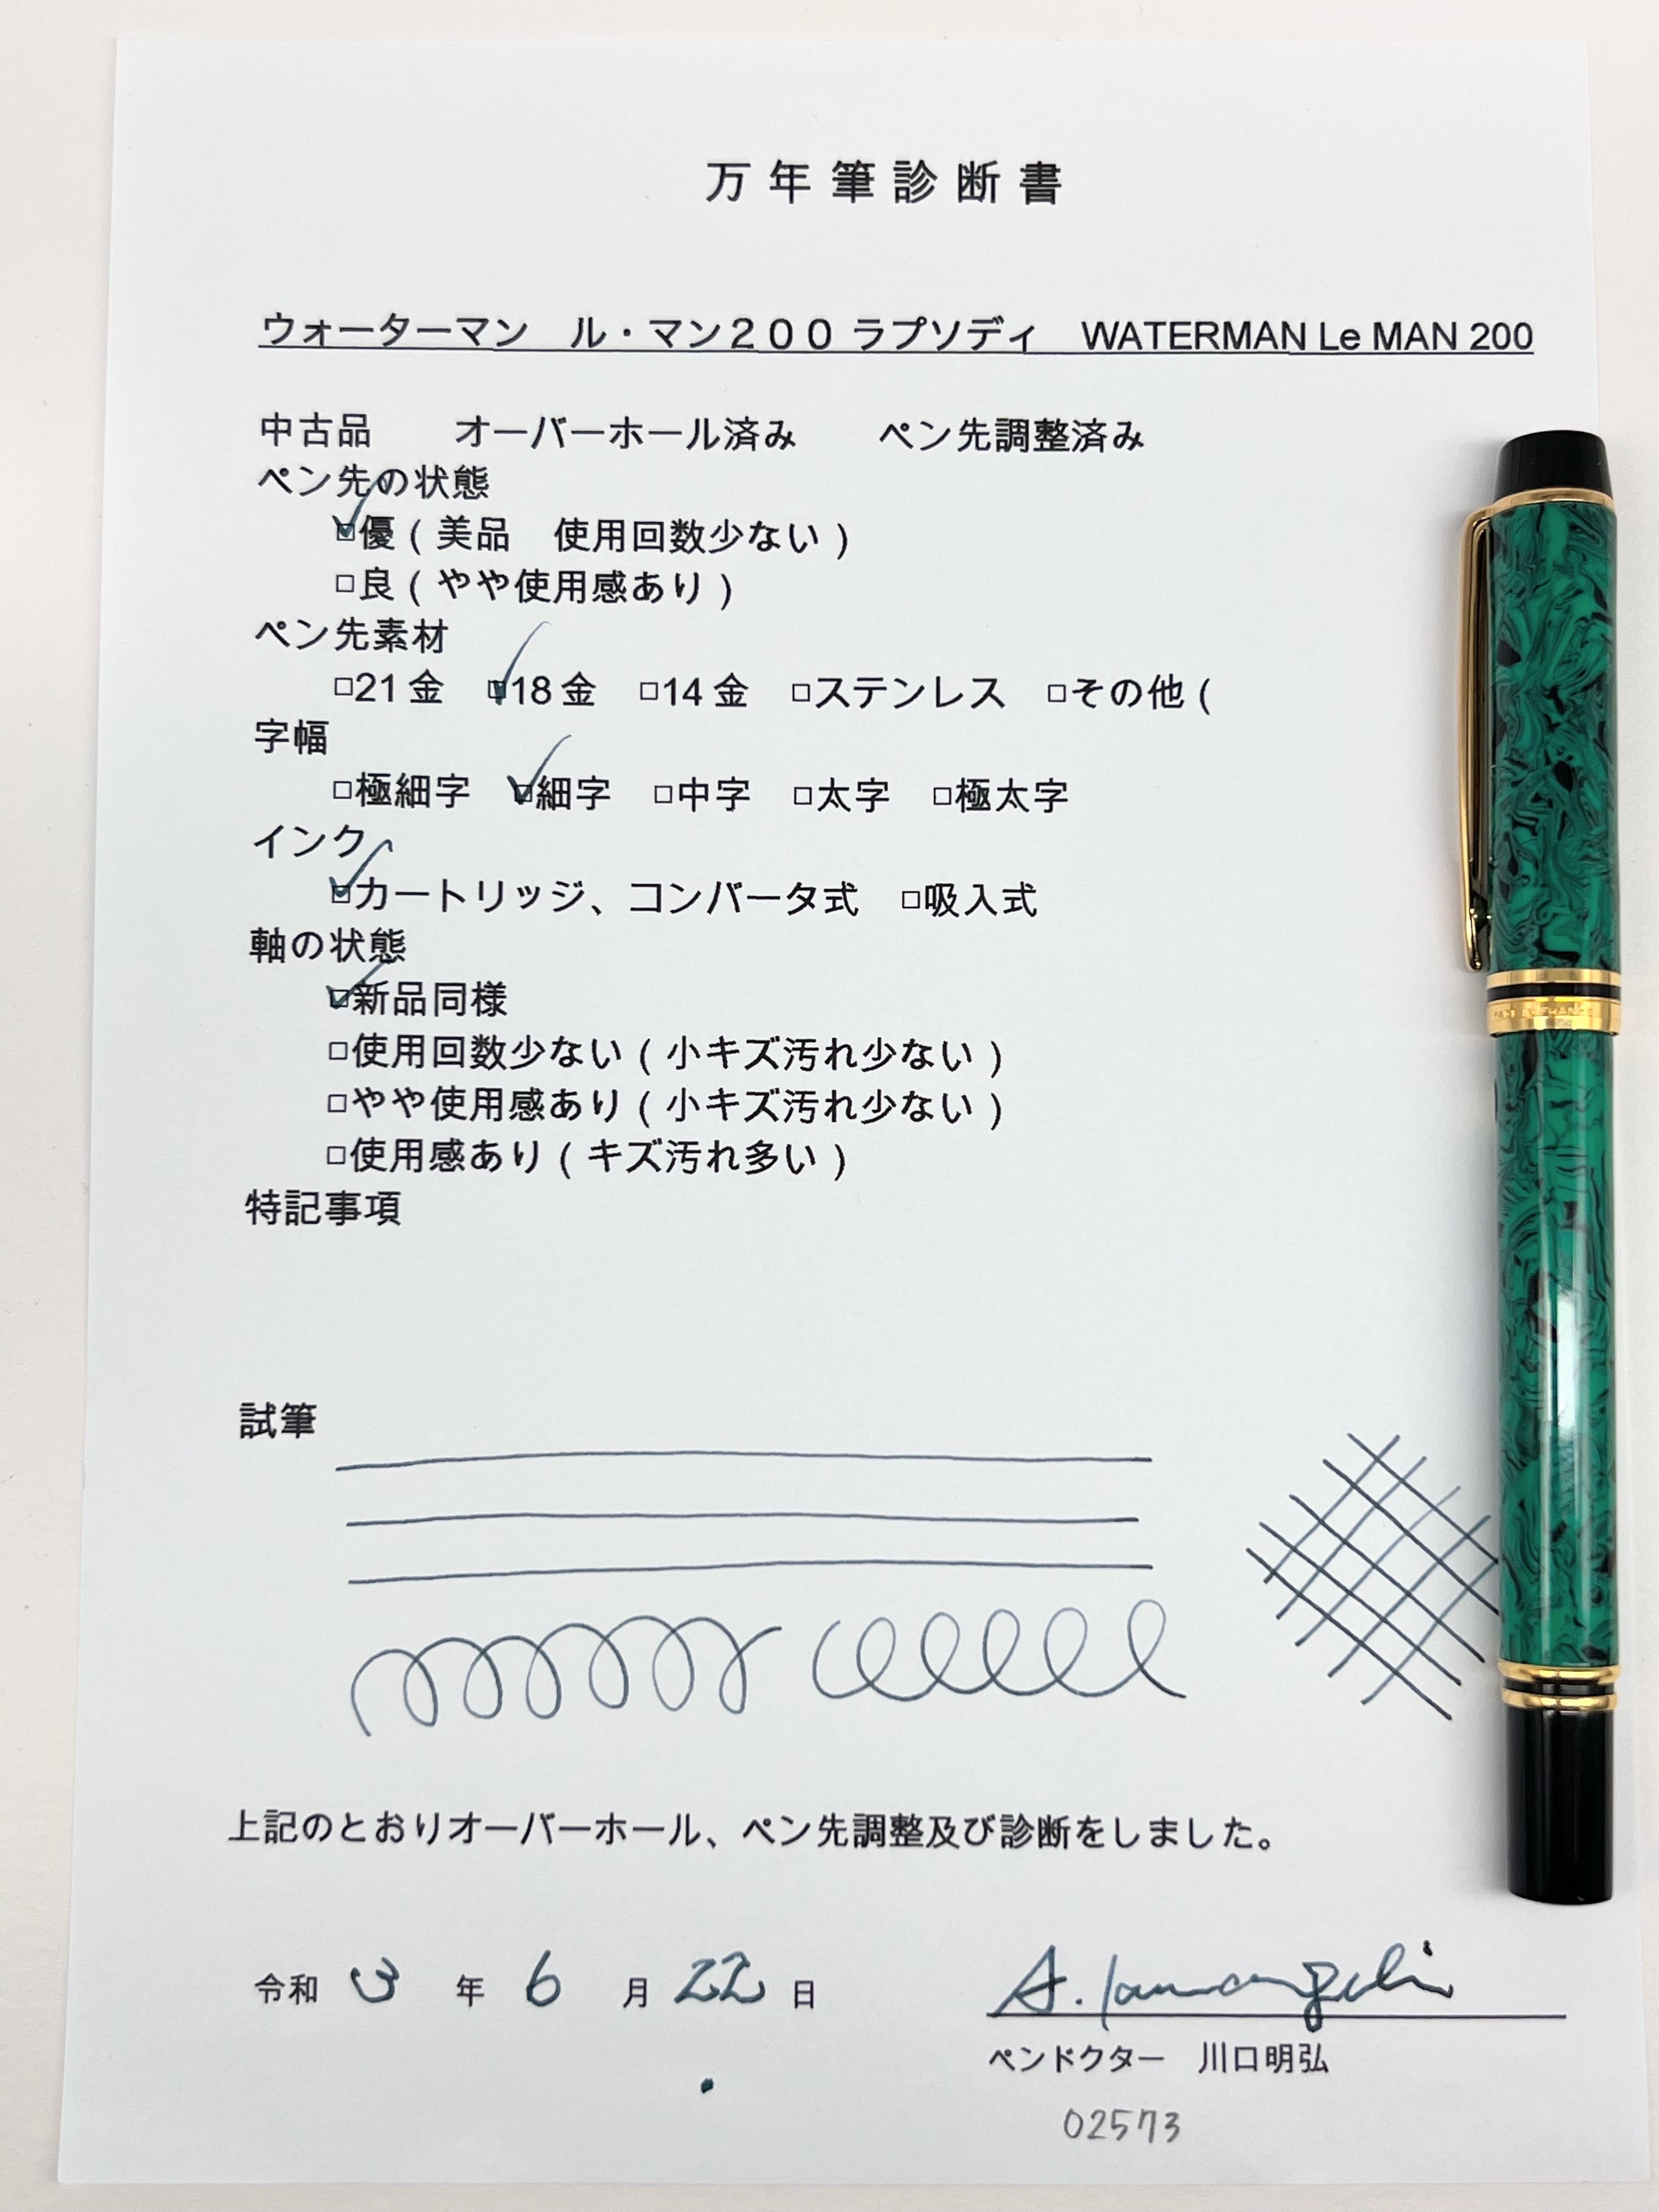 万年筆診断書
ウォーターマン　ル・マン２００ ラプソディ　WATERMAN Le MAN 200
中古品　　オーバーホール済み　　ペン先調整済み
ペン先の状態
☑優（美品　使用回数少ない）
□良（やや使用感あり）
ペン先素材
□21金　☑18金　□14金　□ステンレス　□その他（
字幅
□極細字　☑細字　□中字　□太字　□極太字
インク
☑カートリッジ、コンバータ式　□吸入式
軸の状態
☑新品同様
□使用回数少ない（小キズ汚れ少ない）
□やや使用感あり（小キズ汚れ少ない）
□使用感あり（キズ汚れ多い）
特記事項
試筆
上記のとおりオーバーホール、ペン先調整及び診断をしました。
令和 3 年 6 月 22 日
ペンドクター　川口明弘
02573